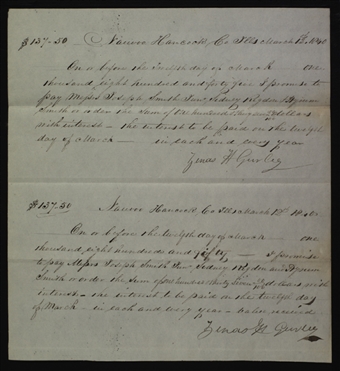 $137-50 Nauvoo Hancock Co Ills March 12, 1840
On or before the twelfth day of March — one
thousand, eight hundred and forty five I promise to
pay Messrs Joseph Smith Junr Sidney Rigdon & Hyrum
Smith or order the Sum of One hundred dollars
with interest — the interest to be paid on the twelfth
day of March — in each and every year
Zenas H Gurley
$137.50 Nauvoo Hancock Co Ills March 12th 1840
On or before the twelfth day of March — one
thousand, eight hundred and fifty — I promise
to pay Messrs Joseph Smith Junr, Sidney Rigdon and Hyrum
Smith or order the Sum of One hundred thirty Seven dollars with
interest — the interest to be paid on the twelfth day
of March — in each and every year — value received
Zenas H Gurley